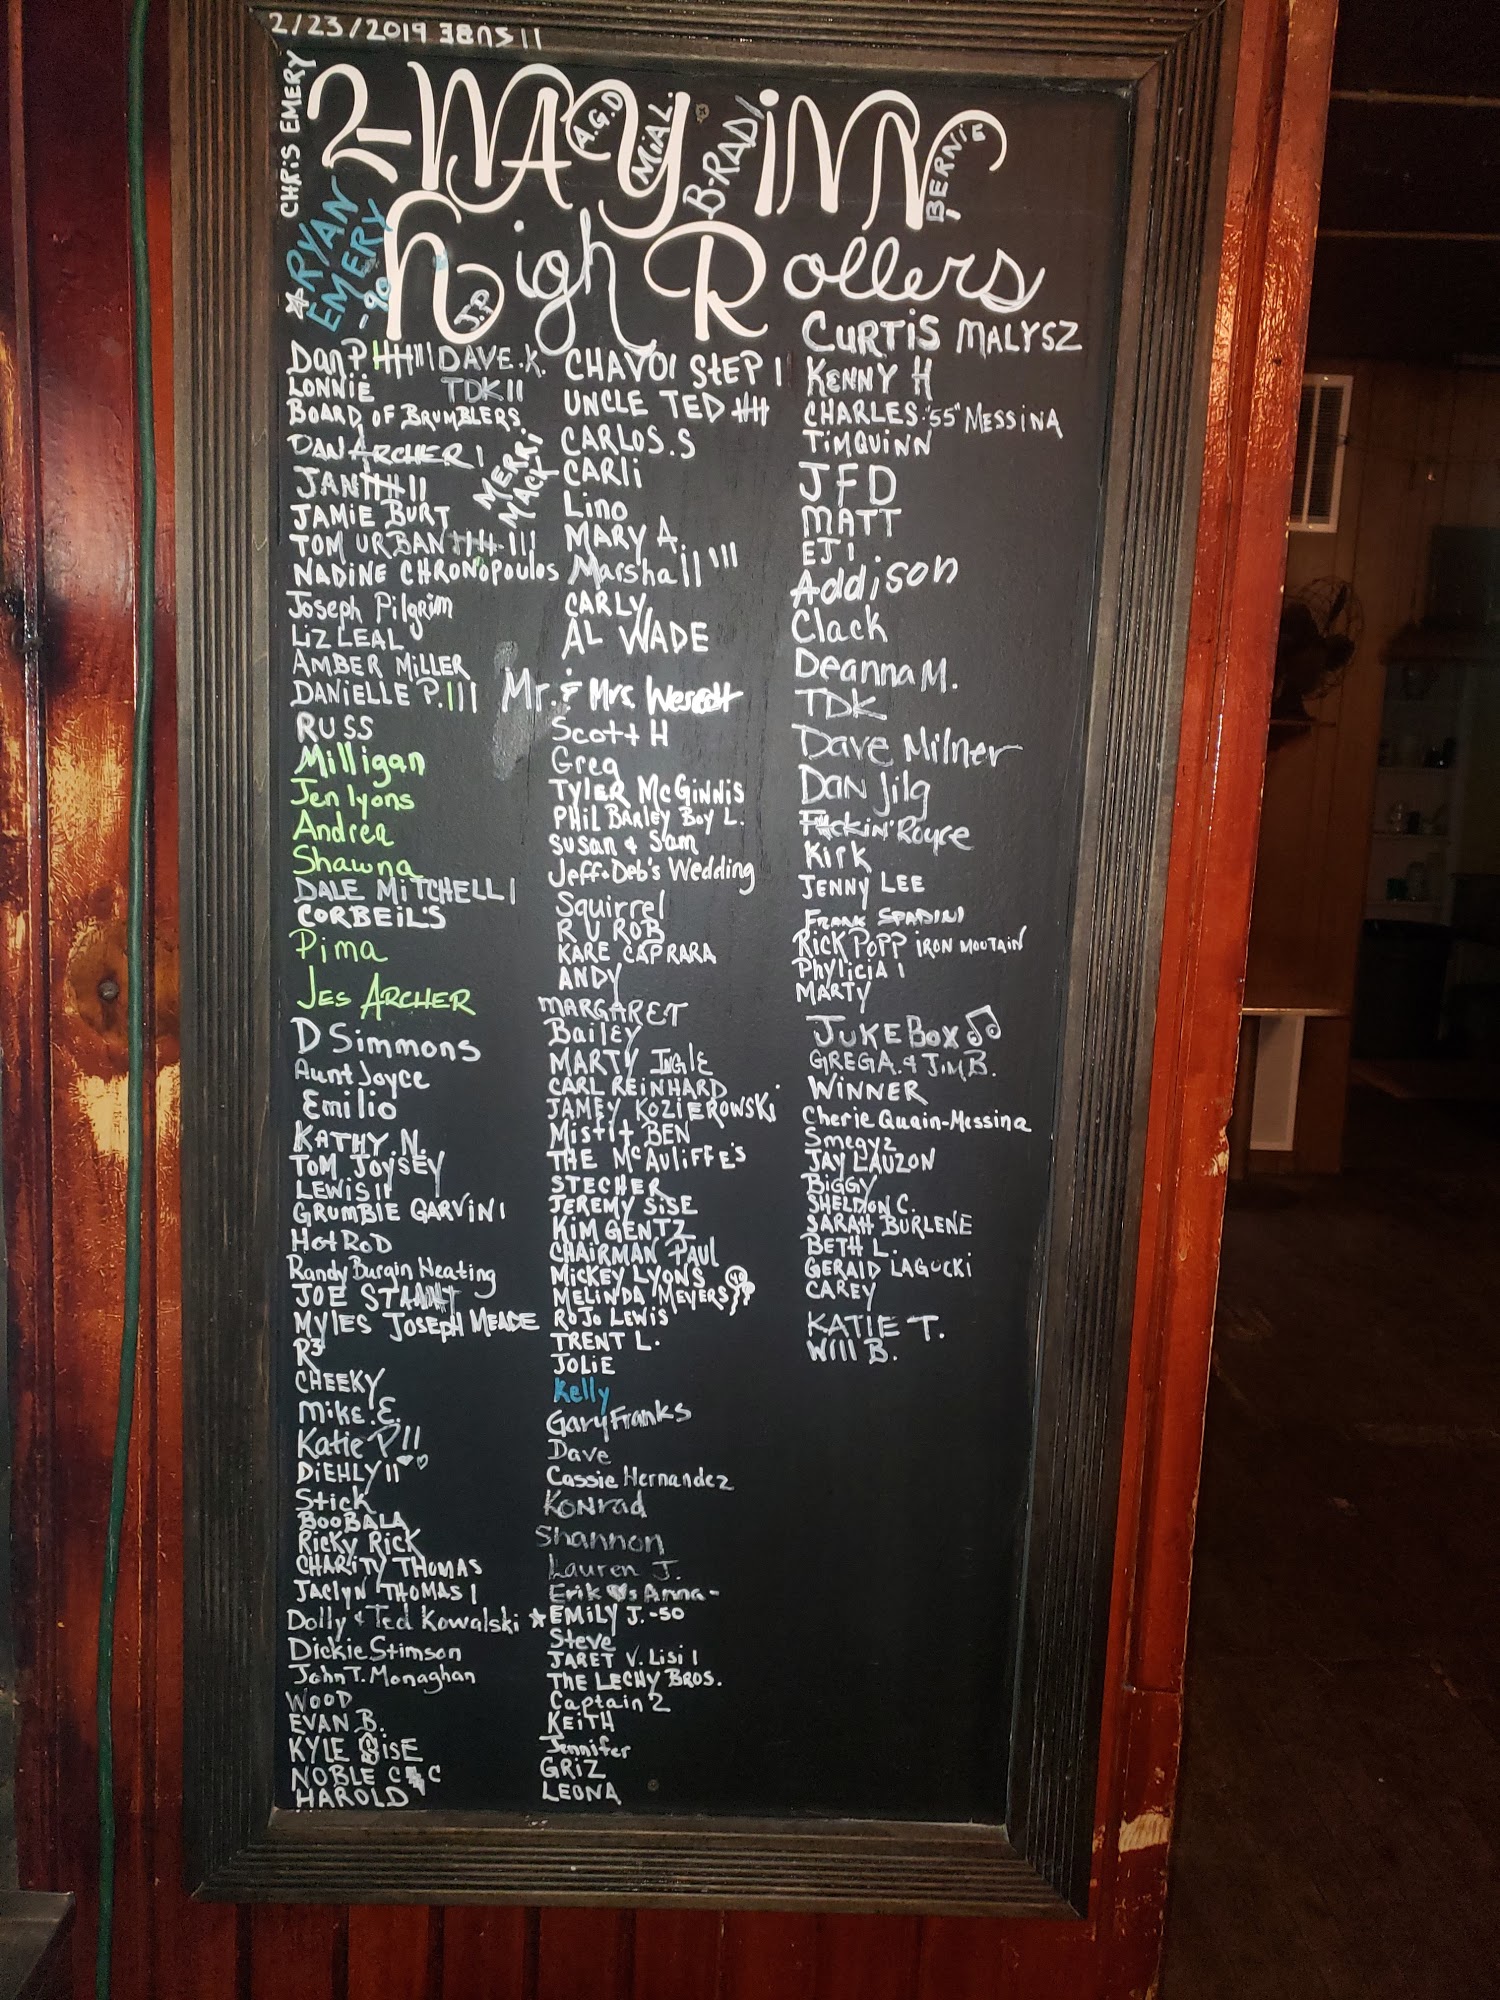 2/23/2019
CHRIS EMERY
2-WAY INN
A.G.D
MiAL.
BRADY
BERNIE
High Rollers
J.P.
☆RYAN
EMERY
-90
DanP 卌 III DAVE.K.
LONNIE TDK II
BOARD OF BRUMBLERS
DAN ARCHER I
MERRI
MACK
JAN 卌 II
JAMIE BURT
TOM URBAN 卌 III
NADINE CHRONOPOULOS
Joseph Pilgrim
LIZ LEAL
AMBER MiLLER
DANiELLE P. III
RUSS
Milligan
Jen lyons
Andrea
Shawna
DALE MiTCHELL I
CORBEIL'S
Pima
JES ARCHER
D Simmons
Aunt Joyce
Emilio
KATHY N.
TOM JOYSEY
LEWIS II
GRUMBIE GARViN I
Hot RoD
Randy Burgin Heating
JOE
MYLES JOSEPH MEADE
R³
CHEEKY
MikE.E.
Katie P II
DiEHLY II ♡♡
Stick
BOOBALA
Ricky Rick
CHARiTY THOMAS
JACLYN THOMAS I
Dolly & Ted Kowalski
Dickie Stimson
John T. Monaghan
WOOD
EVAN B.
KYLE SisE
NOBLE C C
HAROLD
CHAVO I STEP I
UNCLE TED 卌
CARLOS.S
CARLi
Lino
MARY A.
Marshall III
CARLY
AL WADE
Mr. & Mrs Wescott
Scott H
Greg
TYLER McGiNNiS
PHIL BARLEY BOY L.
SUSAN & Sam
Jeff+Deb's Wedding
Squirrel
R U ROB
KARE CAPRARA
ANDY
MARGARET
Bailey
MARTY INGLE
CARL REiNHARD
JAMEY KOZiEROWSKi
Misfit BEN
THE McAULiFFE'S
STECHER
JEREMY SiSE
KIM GENTZ
CHAiRMAN PAUL
MiCKEY LYONS 40
MELiNDA MEYERS
ROJO LEWiS
TRENT L.
JOLiE
Kelly
Gary Franks
Dave
Cassie Hernandez
KONrad
Shannon
Lauren J.
Erik ♥s Anna-
☆EMiLY J.-50
Steve
JARET V. LiSi I
THE LECHY BROS.
Captain 2
KEiTH
Jennifer
GRiZ
LEONA
CURTiS MALYSZ
KENNY H
CHARLES "55" MESSiNA
TIMQUINN
JFD
MATT
EJ I
Addison
Clack
Deanna M.
TDK
Dave Milner
DAN Jilg
F*ckin' Royce
KIRK
JENNY LEE
FRANK SPADINI
RICK POPP IRON MOUTAIN
Phylicia I
MARTY
JUKEBOX ♫
GREG A. & JIM B.
WINNER
Cherie Quain-Messina
Smegyz
JAY LAUZON
BiGGY
SHELDON C.
SARAH BURLENE
BETH L.
GERALD LAGUCKi
CAREY
KATIE T.
Will B.